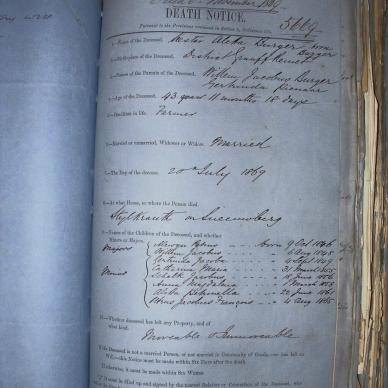 DEATH NOTICE.
5669
Pursuant to the Provisions contained in
1.—Name of the Deceased, Hester Aletta Burger born
Burger
2.—Birthplace of the Deceased, District Graaff Reinet
3.—Names of the Parents of the Deceased, Willem Jacobus Burger
Gertruida Pienaar
4.—Age of the Deceased, 43 years 11 months 18 days
5.—Condition in life, Farmer
6.—Married or unmarried, Widower or Widow, Married
7.—The Day of the decease, 20th July 1869
8.—At what House, or where the Person died,
on Sneeuwberg
9.—Names of the Children of the Deceased, and whether
Minors or Majors,
Majors
born 9 Oct 1846
Willem Jacobus
1848
Gertruida Jacoba
4 Sept 1849
Minors
Catharina Maria
31 March 1855
Schalk Jacobus
18 June 1856
Anna Magdalena
1 March 1858
Aletta Petronella
22 June 1861
Jacobus Francois
4 Aug 1865
10.—Whether deceased has left any Property, and of
what kind,
Moveable & Immoveable
If the Deceased is not a married Person, or not married in Community of Goods,—has left no
Will,—this Notice must be made within Six Days after the death.
If otherwise, it must be made within Six Weeks.
must be filled up and signed by the nearest Relative or Connection of the Deceased, who